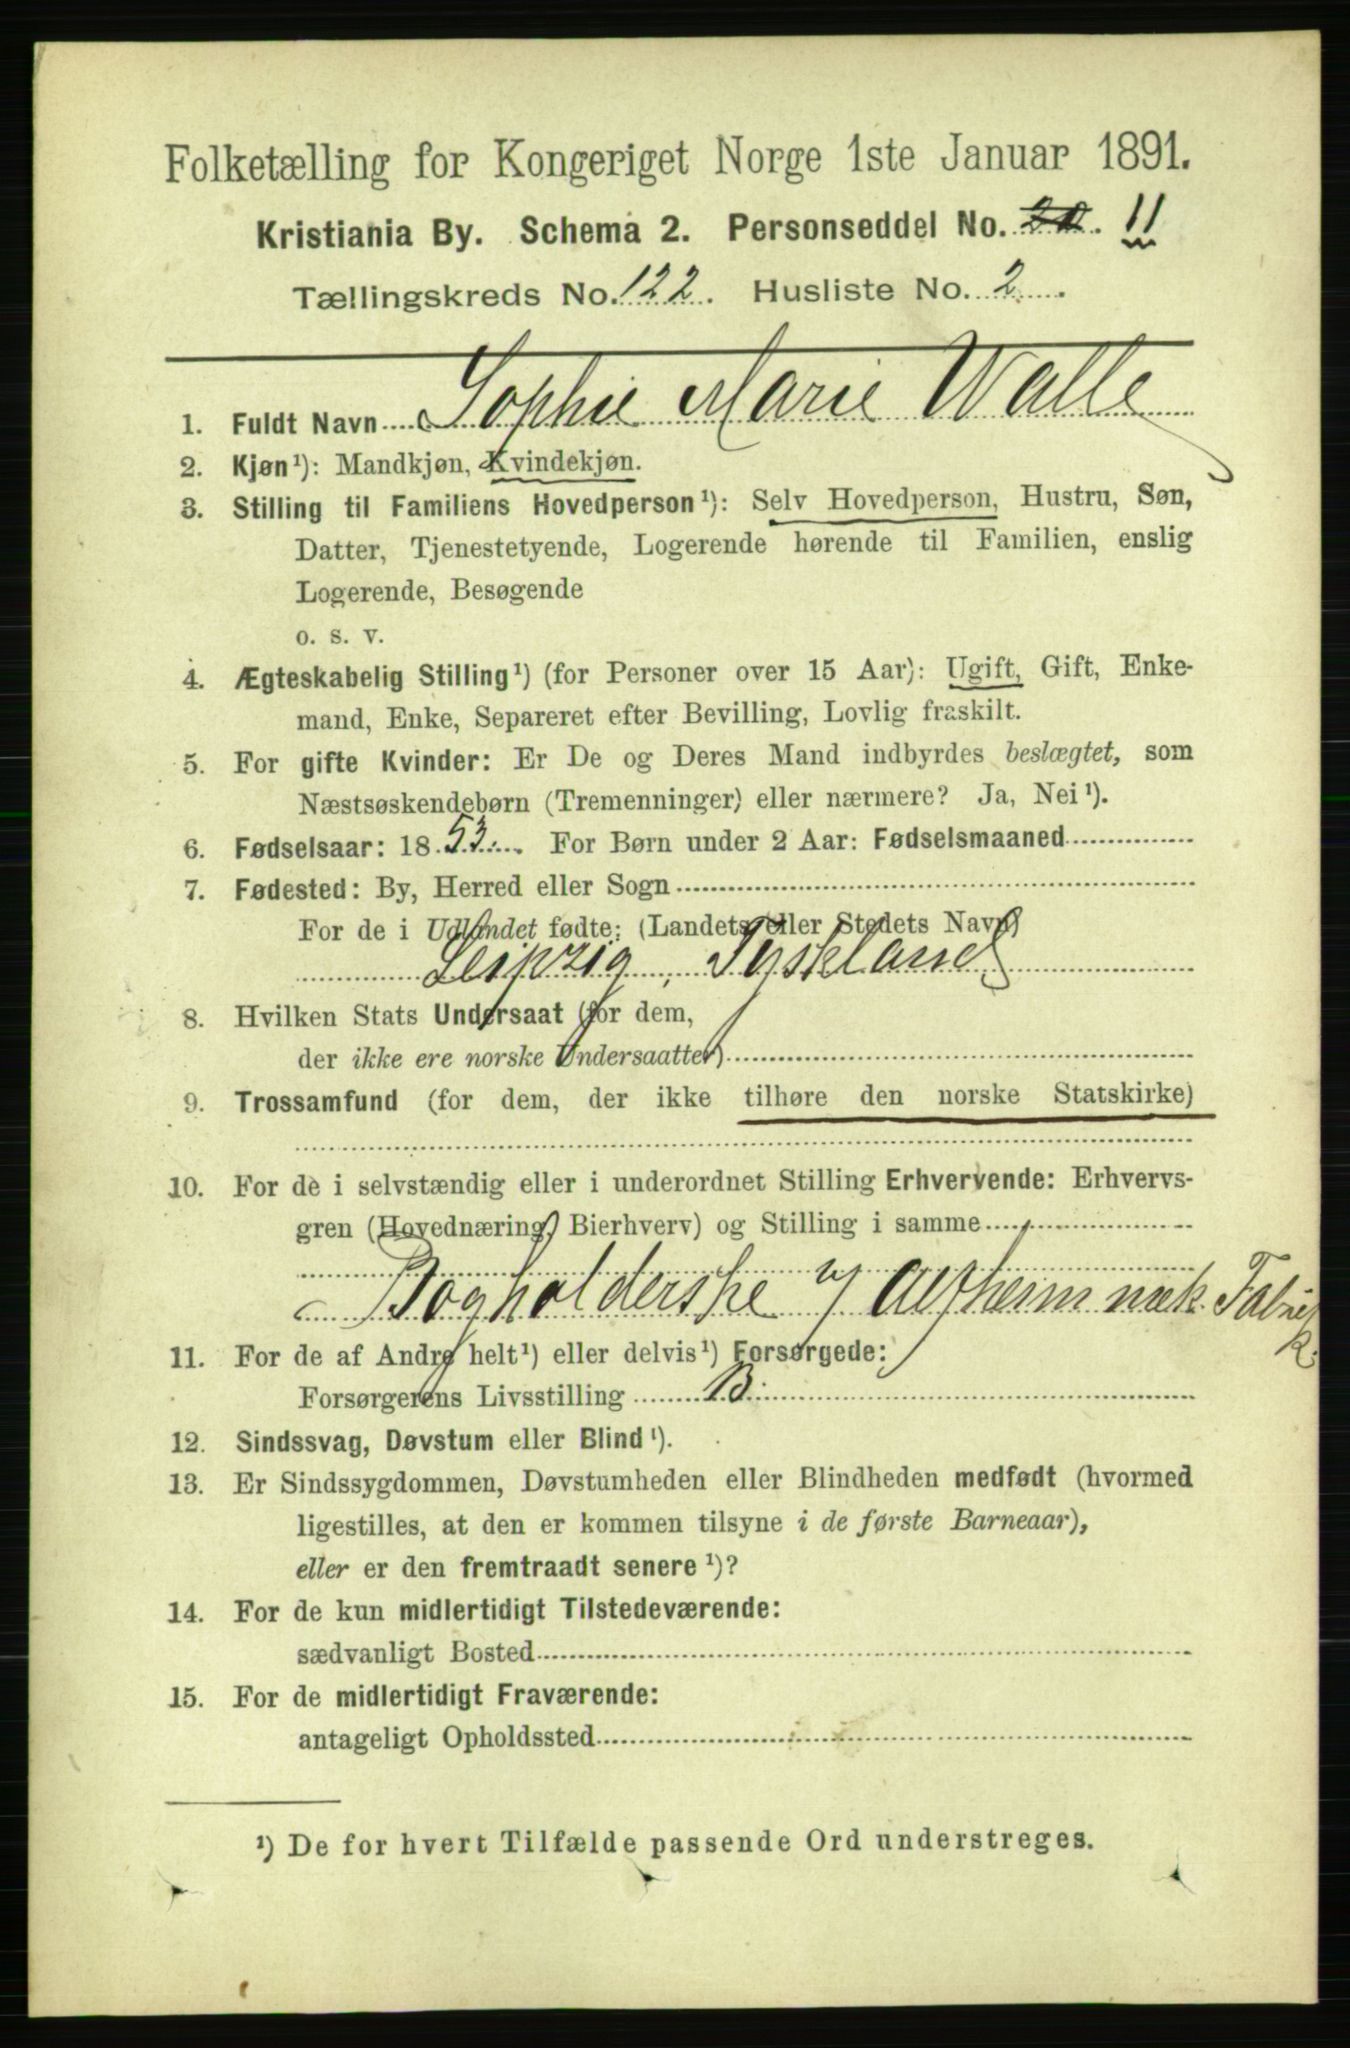 Folketælling for Kongeriget Norge 1ste Januar 1891.
Kristiania By. Schema 2. Personseddel No. 20. 11
Tællingskreds No. 122. Husliste No. 2.
1. Fuldt Navn Sophie Marie Walle
2. Kjøn¹): Mandkjøn, Kvindekjøn.
3. Stilling til Familiens Hovedperson¹): Selv Hovedperson, Hustru, Søn,
Datter, Tjenestetyende, Logerende hørende til Familien, enslig
Logerende, Besøgende
o. s. v.
4. Ægteskabelig Stilling¹) (for Personer over 15 Aar): Ugift, Gift, Enke-
mand, Enke, Separeret efter Bevilling, Lovlig fraskilt.
5. For gifte Kvinder: Er De og Deres Mand indbyrdes beslægtet, som
Næstsøskendebørn (Tremenninger) eller nærmere? Ja, Nei¹).
6. Fødselsaar: 1853. For Børn under 2 Aar: Fødselsmaaned
7. Fødested: By, Herred eller Sogn
For de i Udlandet fødte: (Landets eller Stedets Navn)
Leipzig, Tyskland
8. Hvilken Stats Undersaat (for dem,
der ikke ere norske Undersaatter)
9. Trossamfund (for dem, der ikke tilhøre den norske Statskirke)
10. For de i selvstændig eller i underordnet Stilling Erhvervende: Erhvervs-
gren (Hovednæring, Bierhverv) og Stilling i samme
Bogholderske v/ mek. Fabrik
11. For de af Andre helt¹) eller delvis¹) Forsørgede:
Forsørgerens Livsstilling B.
12. Sindssvag, Døvstum eller Blind¹).
13. Er Sindssygdommen, Døvstumheden eller Blindheden medfødt (hvormed
ligestilles, at den er kommen tilsyne i de første Barneaar),
eller er den fremtraadt senere¹)?
14. For de kun midlertidigt Tilstedeværende:
sædvanligt Bosted
15. For de midlertidigt Fraværende:
antageligt Opholdssted
¹) De for hvert Tilfælde passende Ord understreges.